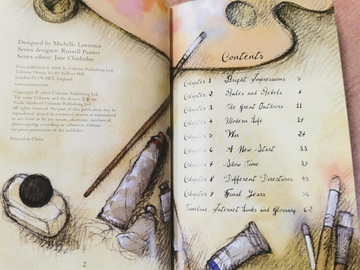 Designed by Michelle Lawrence
Series designer: Russell Punter
Series editor: Jane Chisholm
First published in 2004 by Usborne Publishing Ltd,
Usborne House, 83-85 Saffron Hill,
London EC1N 8RT, England.
www.usborne.com
Copyright © 2004 Usborne Publishing Ltd.
The name Usborne and the devices are
Trade Marks of Usborne Publishing Ltd.
All rights reserved. No part of this publication may be
reproduced, stored in a retrieval system or transmitted
in any form or by any means, electronic, mechanical,
photocopying, recording or otherwise, without
the prior permission of the publisher.
Printed in China.
2
Contents
Chapter 1 Bright Impressions
Chapter 2 Rules and Rebels
Chapter 3 The Great Outdoors 11
Chapter 4 Modern Life
Chapter 5 War
Chapter 6 A New Start
Chapter 7 Show Time
Chapter 8 Different Directions
Chapter 9 Final Years
Timeline, Internet Links and Glossary